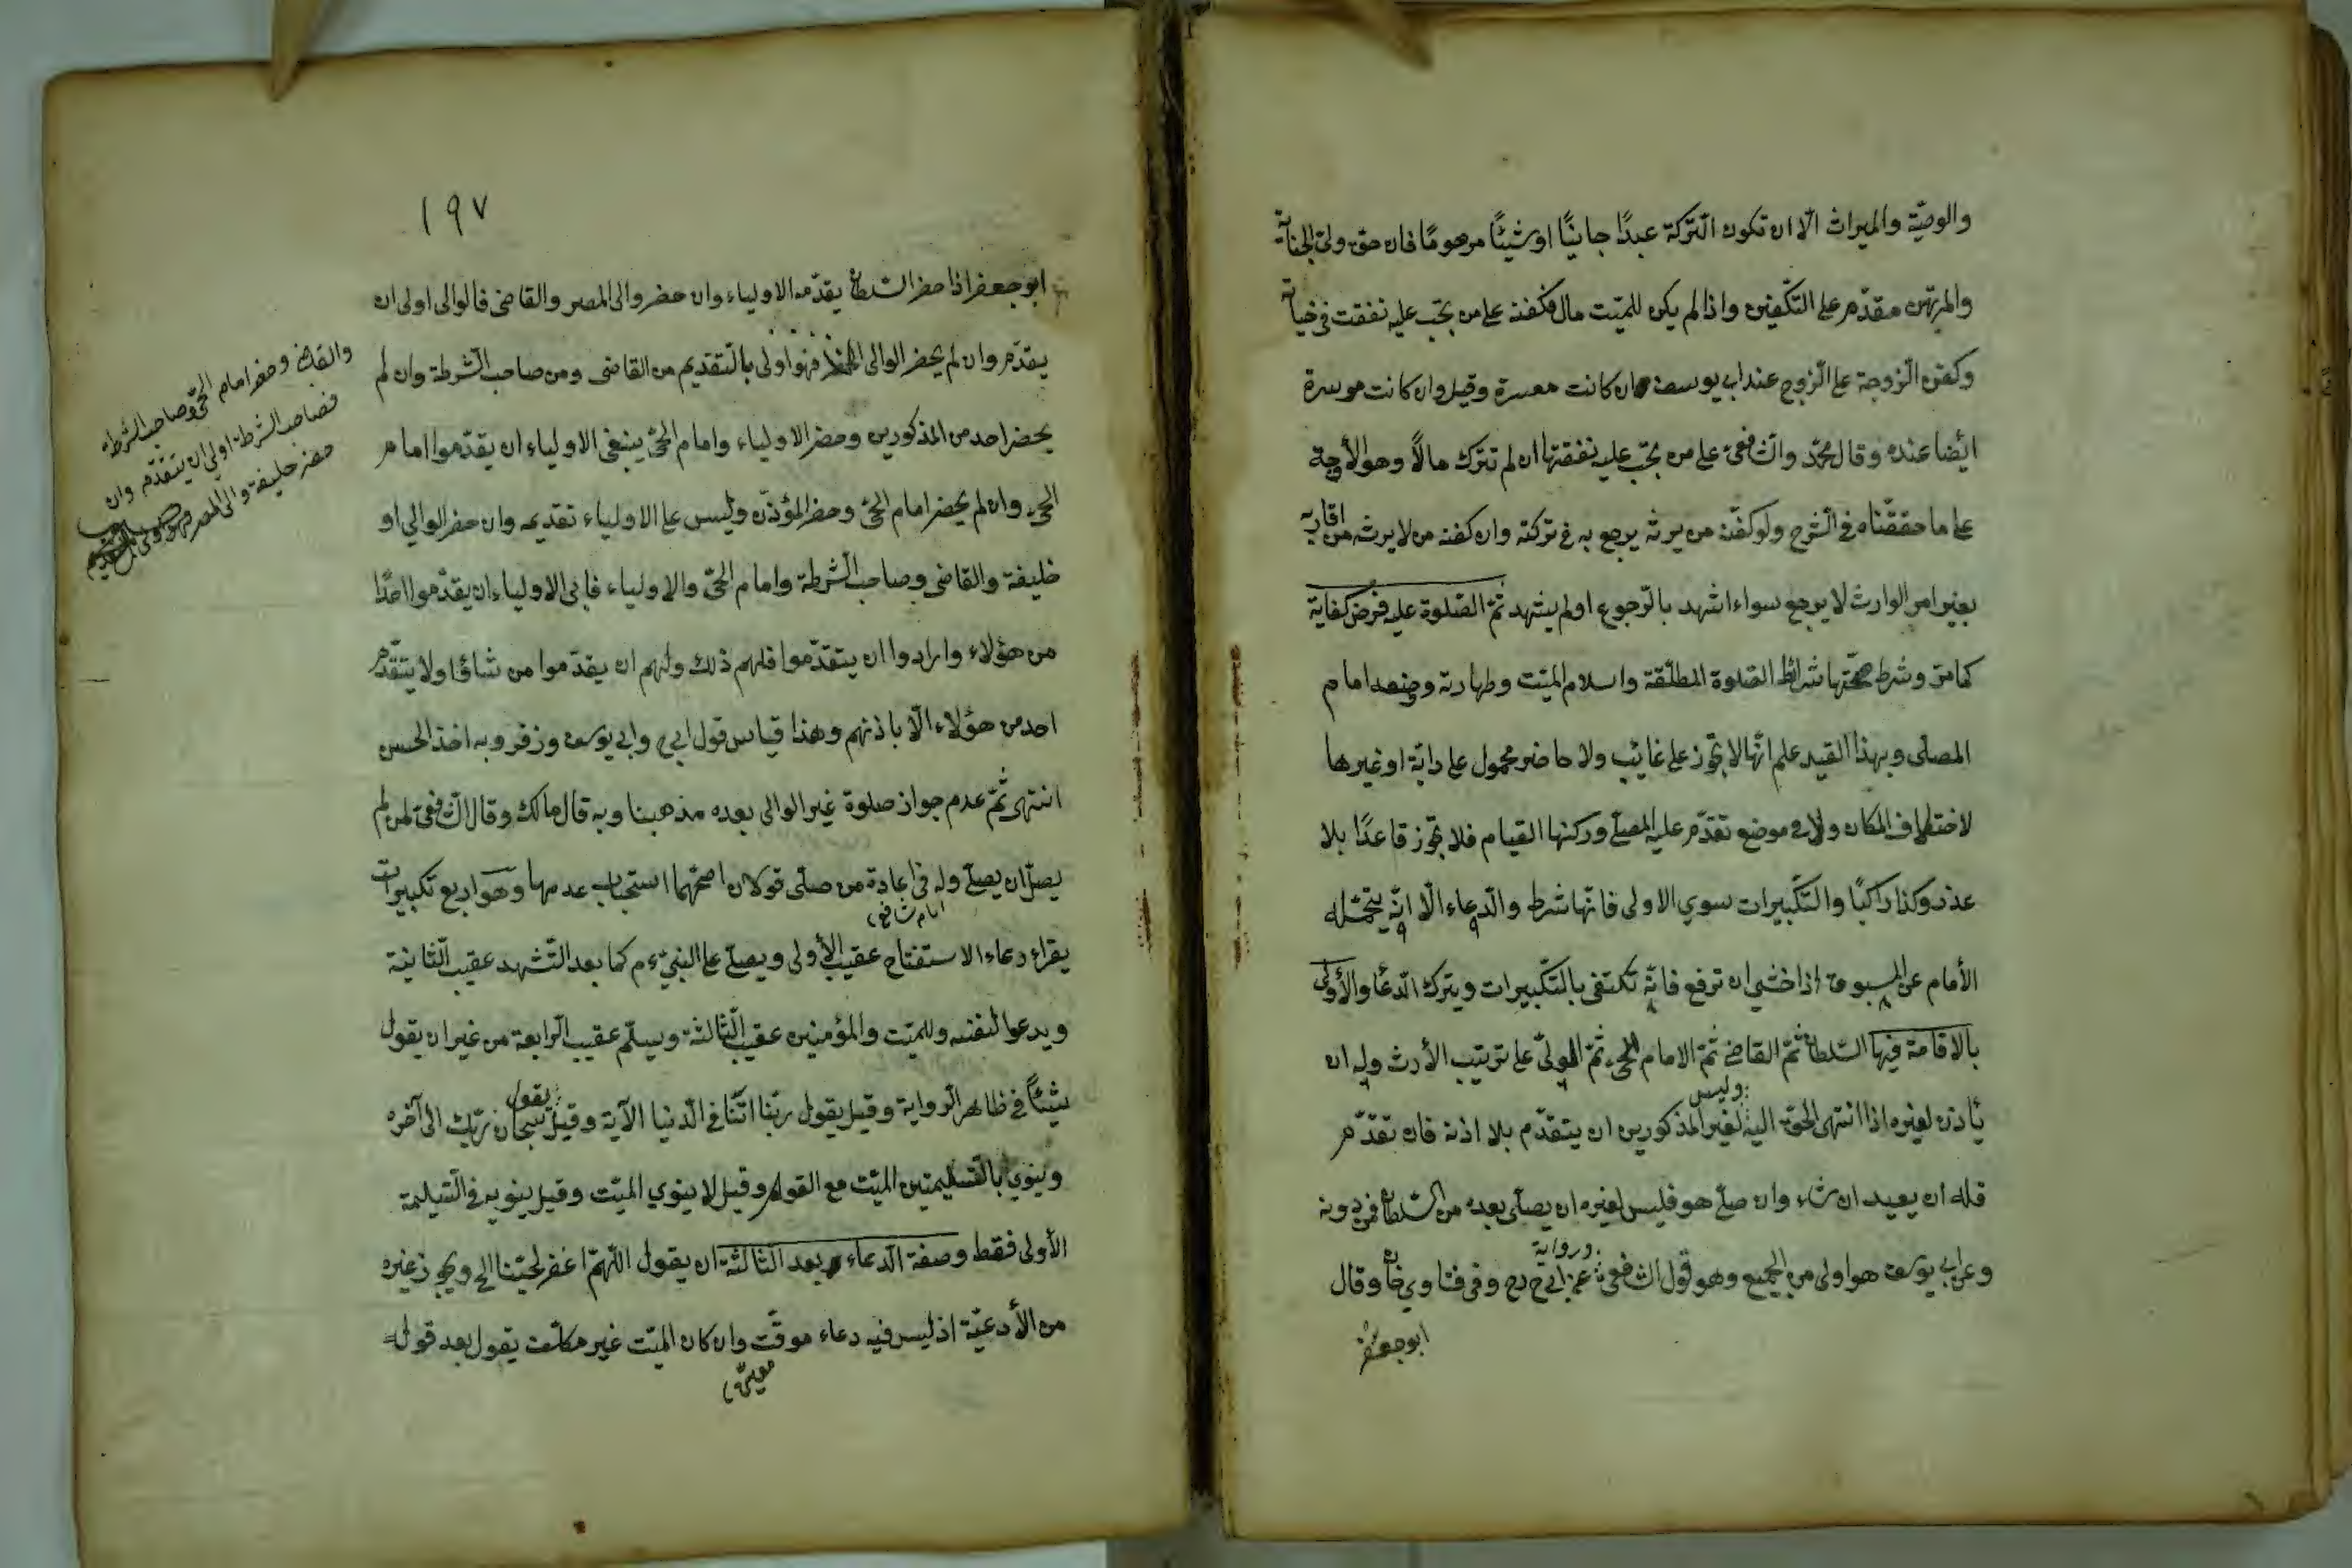 والوصيّة والميراث الّا ان تكون التّركة عبدًا جانيًا او شيئًا مرهومًا فان حقّ وليّ الجناية
والمرتهن مقدّم على التّكفين واذا لم يكن للميّت مال فكفنه على من تجب عليه نفقته فى حياته
وكفن الزّوجة على الزّوج عند ابى يوسف وان كانت معسرة وقيل وان كانت موسرة
ايضا عنده وقال محمّد والشّافعى على من تجب عليه نفقتها ان لم تترك مالًا وهو الأوجه
على ما حققناه فى الشّرح ولو كفّنه من يرثه يرجع به فى تركته وان كفنه من لا يرثه من اقاربه
بغير امر الوارث لا يرجع سواء اشهد بالرّجوع او لم يشهد ثمّ الصّلوة عليه فرض كفاية
كما مرّ وشرط صحّتها شرائط الصّلوة المطلقة واسلام الميّت وطهارته ووضعه امام
المصلّى وبهذا القيد علم انّها لا تجوز على غائب ولا حاضر محمول على دابّة او غيرها
لاختلاف المكان ولا فى موضع تقدّم عليه المصلّى وركنها القيام فلا تجوز قاعدًا بلا
عذر وكذا راكبًا والتّكبيرات سوى الاولى فانّها شرط والدّعاء الّا انّه يتحمّله
الأمام عن المسبوق اذا خشى ان ترفع فانّه يكتفى بالتّكبيرات ويترك الدّعاء والأولى
بالاقامة فيها السّلطان ثمّ القاضى ثمّ الامام الحىّ ثمّ الولىّ على ترتيب الأرث وله ان
يأذن لغيره اذا انتهى الحقّ اليه وليس لغير المذكورين ان يتقدّم بلا اذنه فان تقدّم
فله ان يعيد ان شاء وان صلّى هو فليس لغيره ان يصلّى بعده من السّلطان فمن دونه
وعن ابى يوسف هو اولى من الجميع وهو قول الشّافعى ورواية عن ابى ح رح وفى فتاوى خان وقال
ابو جعفر
١٩٧
ابو جعفر اذا حضر السّلطان يقدّمه الاولياء وان حضر والى المصر والقاضى فالوالى اولى ان
يقدّم وان لم يحضر الوالى فهو اولى بالتّقديم من القاضى ومن صاحب الشّرطة وان لم
يحضر احد من المذكورين وحضر الاولياء وامام الحىّ ينبغى الاولياء ان يقدّموا امام
الحىّ وان لم يحضر امام الحىّ وحضر المؤذّن وليس على الاولياء تقديمه وان حضر الوالي او
خليفة والقاضى وصاحب الشّرطة وامام الحىّ والاولياء فابى الاولياء ان يقدّموا احدًا
من هؤلاء وارادوا ان يتقدّموا فلهم ذلك ولهم ان يقدّموا من شاؤا ولا يتقدّم
احد من هؤلاء الّا باذنهم وهذا قياس قول ابى ح وابى يوسف وزفر وبه اخذ الحسن
انتهى ثمّ عدم جواز صلوة غير الوالى بعده مذهبنا وبه قال مالك وقال الشّافعى لمن لم
يصلّ ان يصلّى وله فى اعادة من صلّى قولان اصحّهما استحباب عدمها وهو اربع تكبيرات
امام شافعى
يقراء دعاء الاستفتاح عقيب الأولى ويصلّى على النبىّ ءم كما بعد التّشهد عقيب الثّانية
ويدعوا لنفسه وللميّت والمؤمنين عقيب الثّالثة ويسلّم عقيب الرّابعة من غير ان يقول
شيئًا فى ظاهر الرّواية وقيل يقول ربّنا اتنا فى الدّنيا الآية وقيل يقول سبحان ربّك الى آخره
وينوي بالتّسليمتين الميّت مع القوم وقيل لا ينوي الميّت وقيل ينويه فى التّسليمة
الأولى فقط وصفة الدّعاء بعد الثّالثة ان يقول اللّهمّ اغفر لحيّنا الخ ويجوز غيره
من الأدعيّة اذ ليس فيه دعاء موقّت وان كان الميّت غير مكلّف يقول بعد قوله
معيّن
والقاضى وحضر امام الحىّ وصاحب الشّرطة
فصاحب الشّرطة اولى ان يتقدّم وان
حضر خليفة والى المصر فهو اولى بالتّقديم